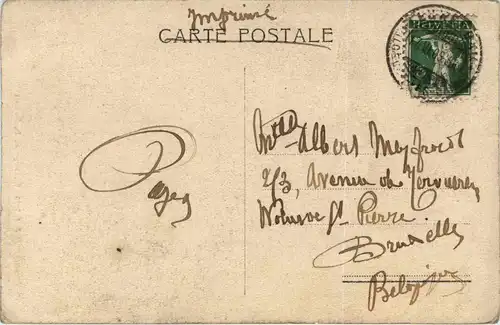 Imprimé
CARTE POSTALE
HELVETIA
Mlle Albert Meyfroidt
213, Avenue de Tervueren
Woluwe St Pierre
Bruxelles
Belgique